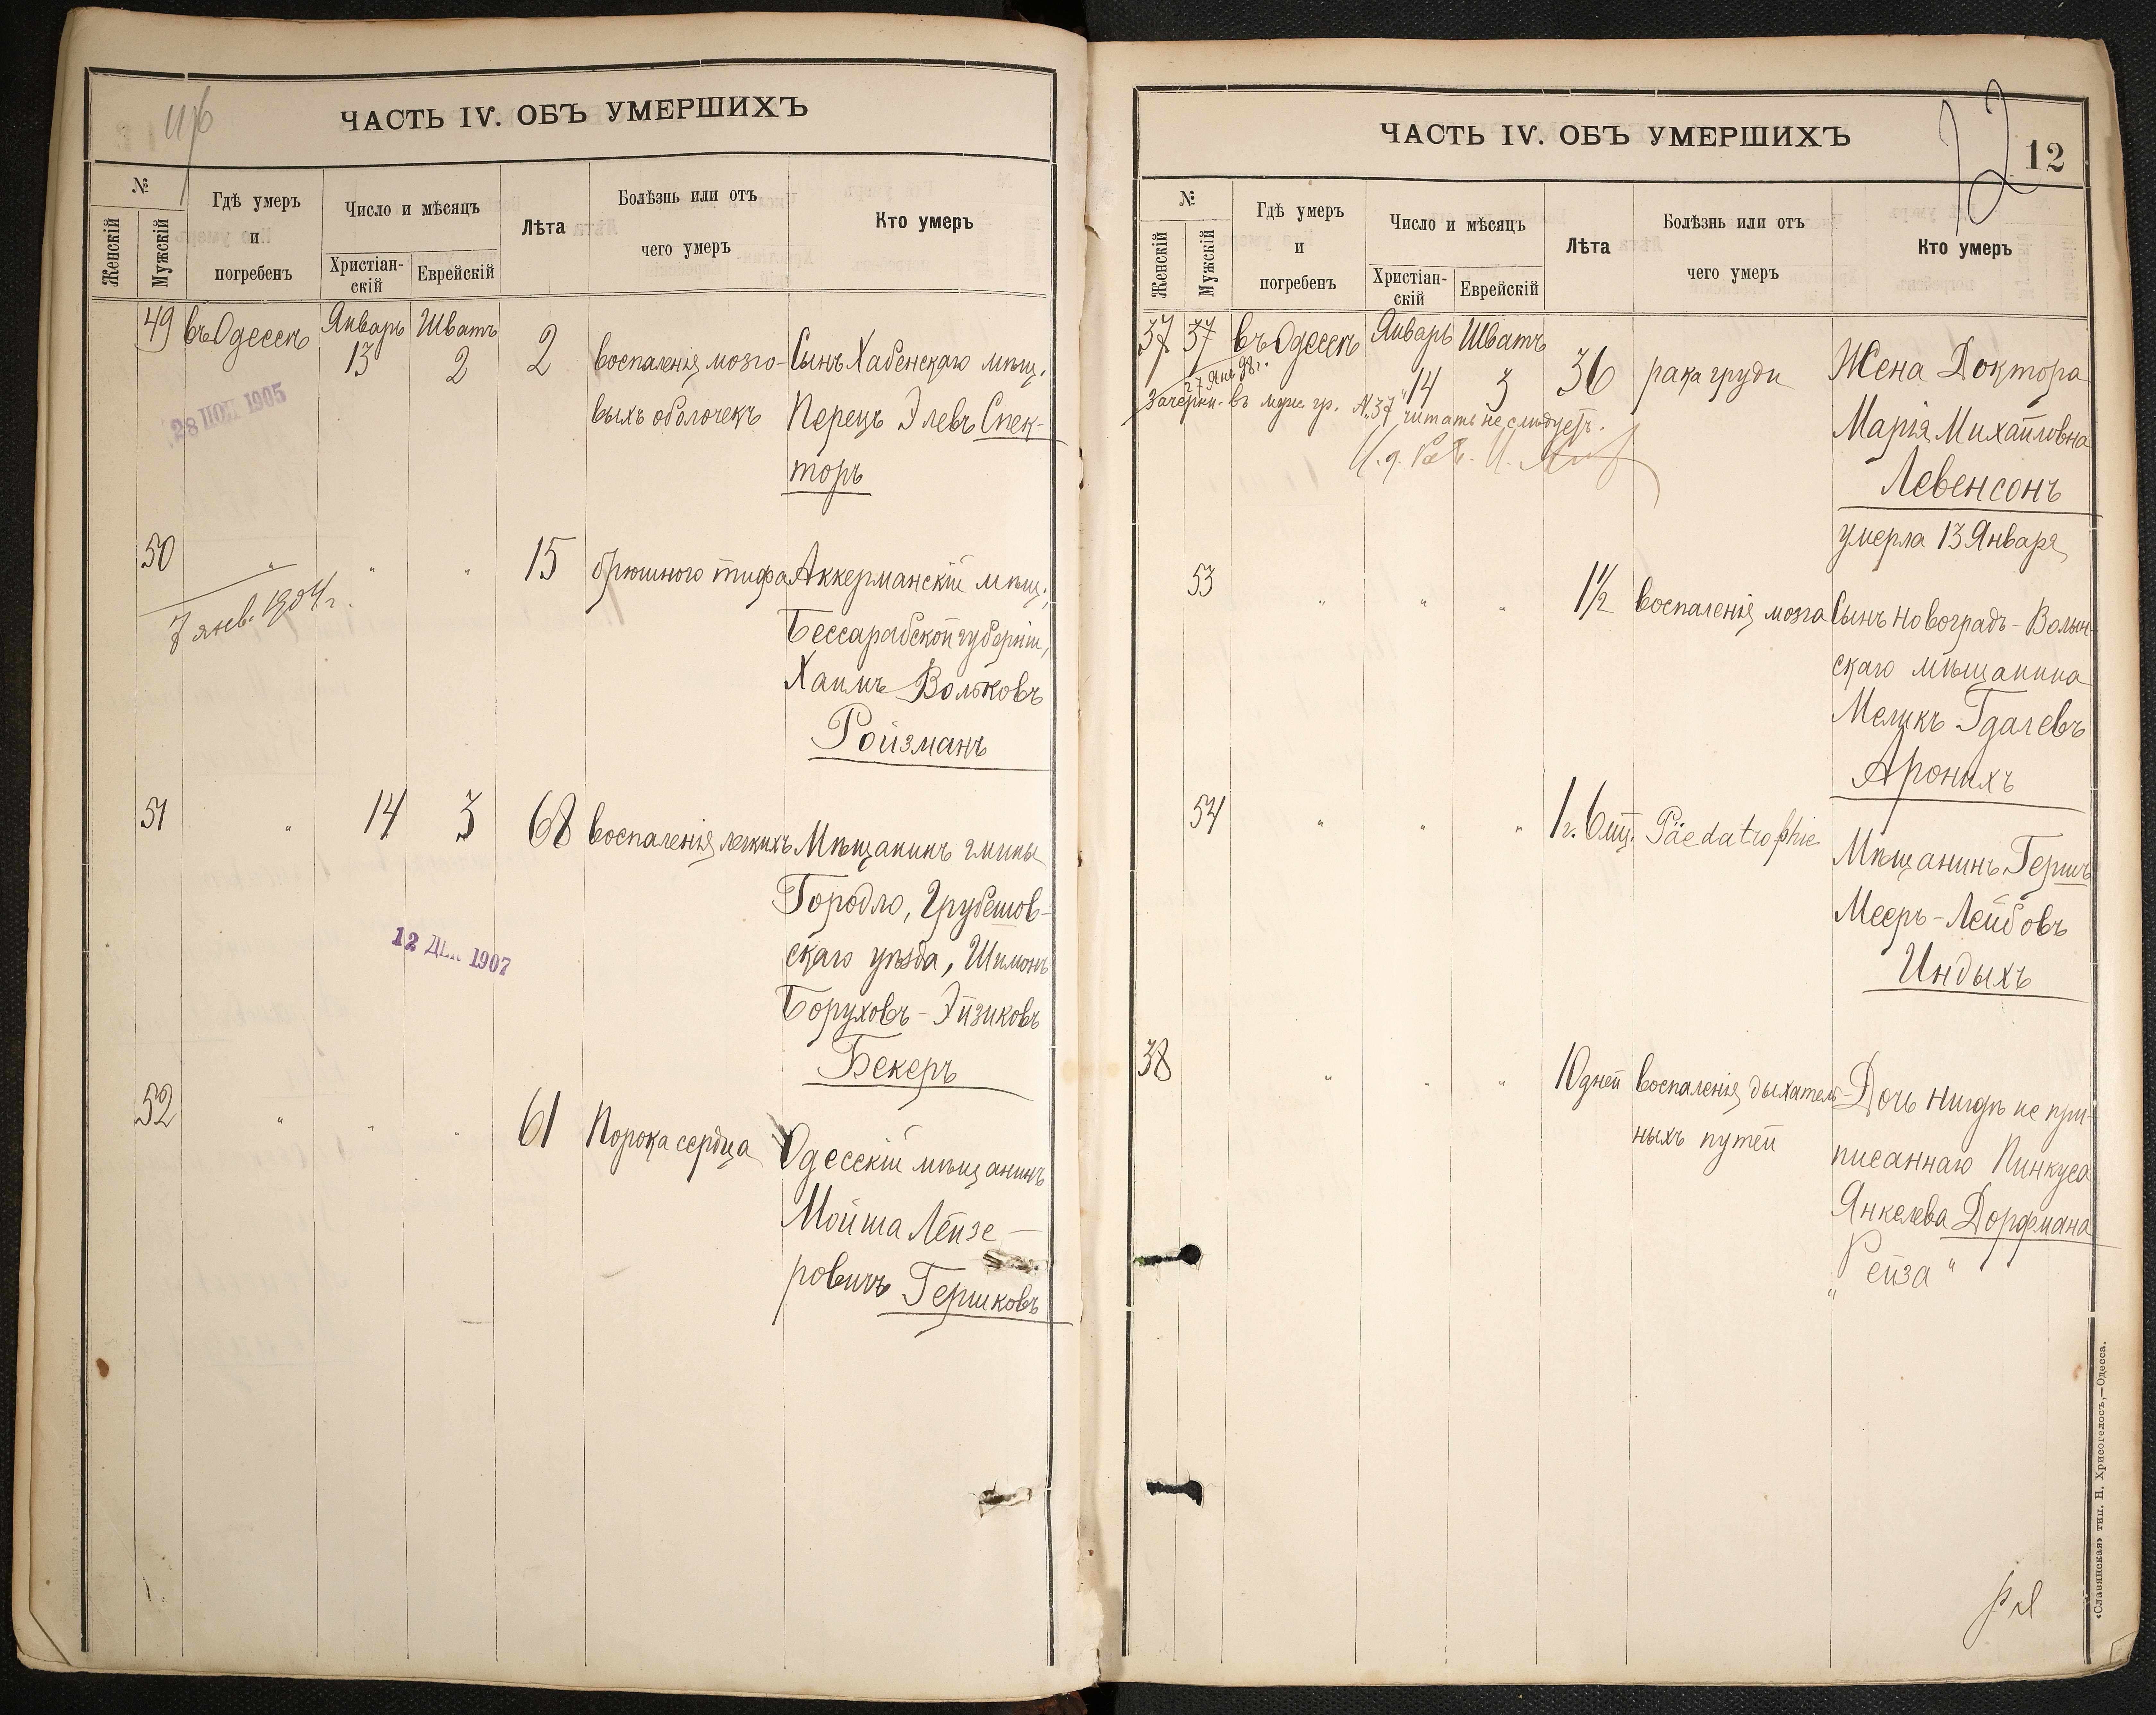 ЧАСТЬ IV. ОБЪ УМЕРШИХЪ
№
Женскій
Мужскій
Гдѣ умеръ
и
погребенъ
Число и мѣсяцъ
Христіан-
скій
Еврейскій
Лѣта
Болѣзнь или отъ
чего умеръ
Кто умеръ
49 въ Одессѣ Январь 13 Шватъ 2 2 воспаленія мозго- Сынъ Хабенскаго мѣщ.
выхъ оболочекъ Перецъ Элевъ Спек-
торъ
28 НОЯ 1905
50 " " " 15 брюшного тифа Аккерманскій мѣщ.,
7 янв. 1904 г.
Бессарабской губерніи,
Хаимъ Вольковъ
Ройзманъ
51 " 14 3 68 воспаленія легкихъ Мѣщанинъ гмины
Городло, Грубешов-
скаго уѣзда, Шимонъ
Боруховъ-Эйзиковъ
Бекеръ
12 ДЕК 1907
52 " " " 61 Порока сердца Одесскій мѣщанинъ
Мойша Лейзе-
ровичъ Гершковъ
ЧАСТЬ IV. ОБЪ УМЕРШИХЪ
12
12
№
Женскій
Мужскій
Гдѣ умеръ
и
погребенъ
Число и мѣсяцъ
Христіан-
скій
Еврейскій
Лѣта
Болѣзнь или отъ
чего умеръ
Кто умеръ
37 37 въ Одессѣ Январь 14 Шватъ 3 36 рака груди Жена Доктора
27 Янв 98 г.
Зачеркн. въ муж. гр. №37 читать не слѣдуетъ.
Марія Михайловна
Левенсонъ
умерла 13 Января
53 " " " 1½ воспаленія мозга Сынъ Новоградъ-Волын-
скаго мѣщанина
Меликъ Гдалевъ
Аронихъ
54 " " " 1 г. 6 мц. Päedatrophie
Мѣщанинъ Гершъ
Мееръ-Лейбовъ
Индыхъ
38 " " " 10 дней воспаленія дыхатель- Дочь нигдѣ не при-
ныхъ путей писаннаго Пинкуса
Янкелева Дорфмана
„Рейза"
«Славянская» тип. Н. Хрисогелосъ,—Одесса.